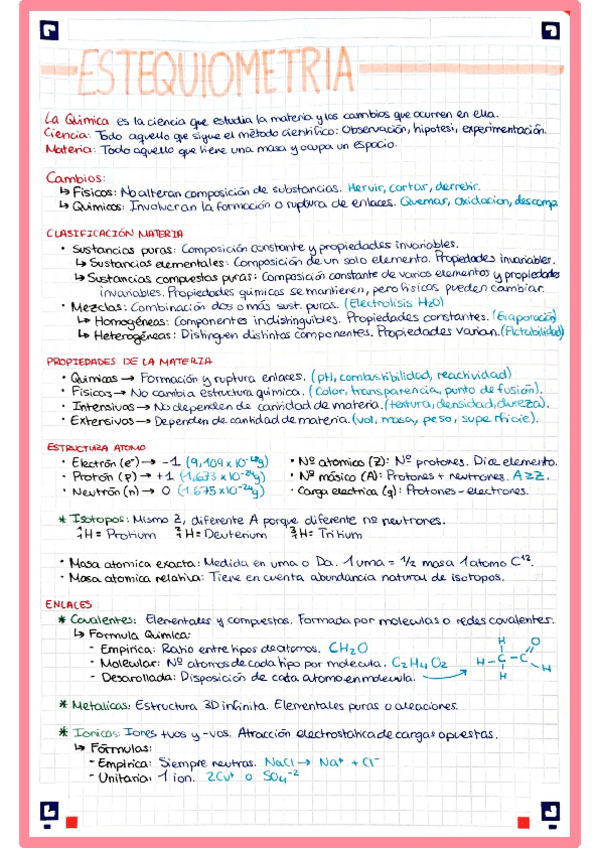 ESTEQUIOMETRIA
La Química es la ciencia que estudia la materia y los cambios que ocurren en ella.
Ciencia: Todo aquello que sigue el método científico: Observación, hipotesi, experimentación.
Materia: Todo aquello que tiene una masa y ocupa un espacio.
Cambios:
↳ Físicos: No alteran composición de substancias. Hervir, cortar, derretir.
↳ Químicos: Involucran la formación o ruptura de enlaces. Quemar, Oxidacion, descomp
CLASIFICACIÓN MATERIA
· Sustancias puras: Composición constante y propiedades invariables.
↳ Sustancias elementales: Composición de un solo elemento. Propiedades invariables.
↳ Sustancias compuestas puras: Composición constante de varios elementos y propiedades
invariables. Propiedades químicas se mantienen, pero físicas pueden cambiar.
· Mezclas: Combinación dos o más sust. puras. (Electrolisis H2O)
↳ Homogéneas: Componentes indistinguibles. Propiedades constantes. (Evaporación)
↳ Heterogéneas: Distinguen distintos componentes. Propiedades varian. (Flotabilidad)
PROPIEDADES DE LA MATERIA
· Químicas → Formación y ruptura enlaces. (pH, combustibilidad, reactividad)
· Físicas → No cambia estructura química. (Color, transparencia, punto de fusión).
· Intensivos → No dependen de cantidad de materia. (textura, densidad, dureza).
· Extensivos → Dependen de cantidad de materia. (vol, masa, peso, superficie).
ESTRUCTURA ATOMO
· Electrón (e⁻) → -1 (9,109 x 10⁻²⁸g)
· Protón (p) → +1 (1,673 x 10⁻²⁴g)
· Neutrón (n) → 0 (1,675 x 10⁻²⁴g)
· Nº atomico (Z): Nº protones. Dice elemento.
· Nº másico (A): Protones + neutrones. A≥Z.
· Carga electrica (q): Protones - electrones.
* Isotopos: Mismo Z, diferente A porque diferente nº neutrones.
¹₁H = Protium ²₁H = Deuterium ³₁H = Tritium
· Masa atomica exacta: Medida en uma o Da. 1 uma = 1/2 masa 1 atomo C¹².
· Masa atomica relativa: Tiene en cuenta abundancia natural de isotopos.
ENLACES
* Covalentes: Elementales y compuestas. Formada por moleculas o redes covalentes.
↳ Formula Química:
- Empírica: Ratio entre tipos de atomos. CH2O
- Molecular: Nº atomos de cada tipo por molecula. C2H4O2
- Desarollada: Disposición de cada atomo en molecula.
H O
H - C - C
H H
* Metalicas: Estructura 3D infinita. Elementales puras o aleaciones.
* Ionicas: Iones +vos y -vos. Atracción electrostatica de cargas opuestas.
↳ Fórmulas:
- Empírica: Siempre neutras. NaCl → Na⁺ + Cl⁻
- Unitaria: 1 ion. 2Cu⁺ o SO4⁻²